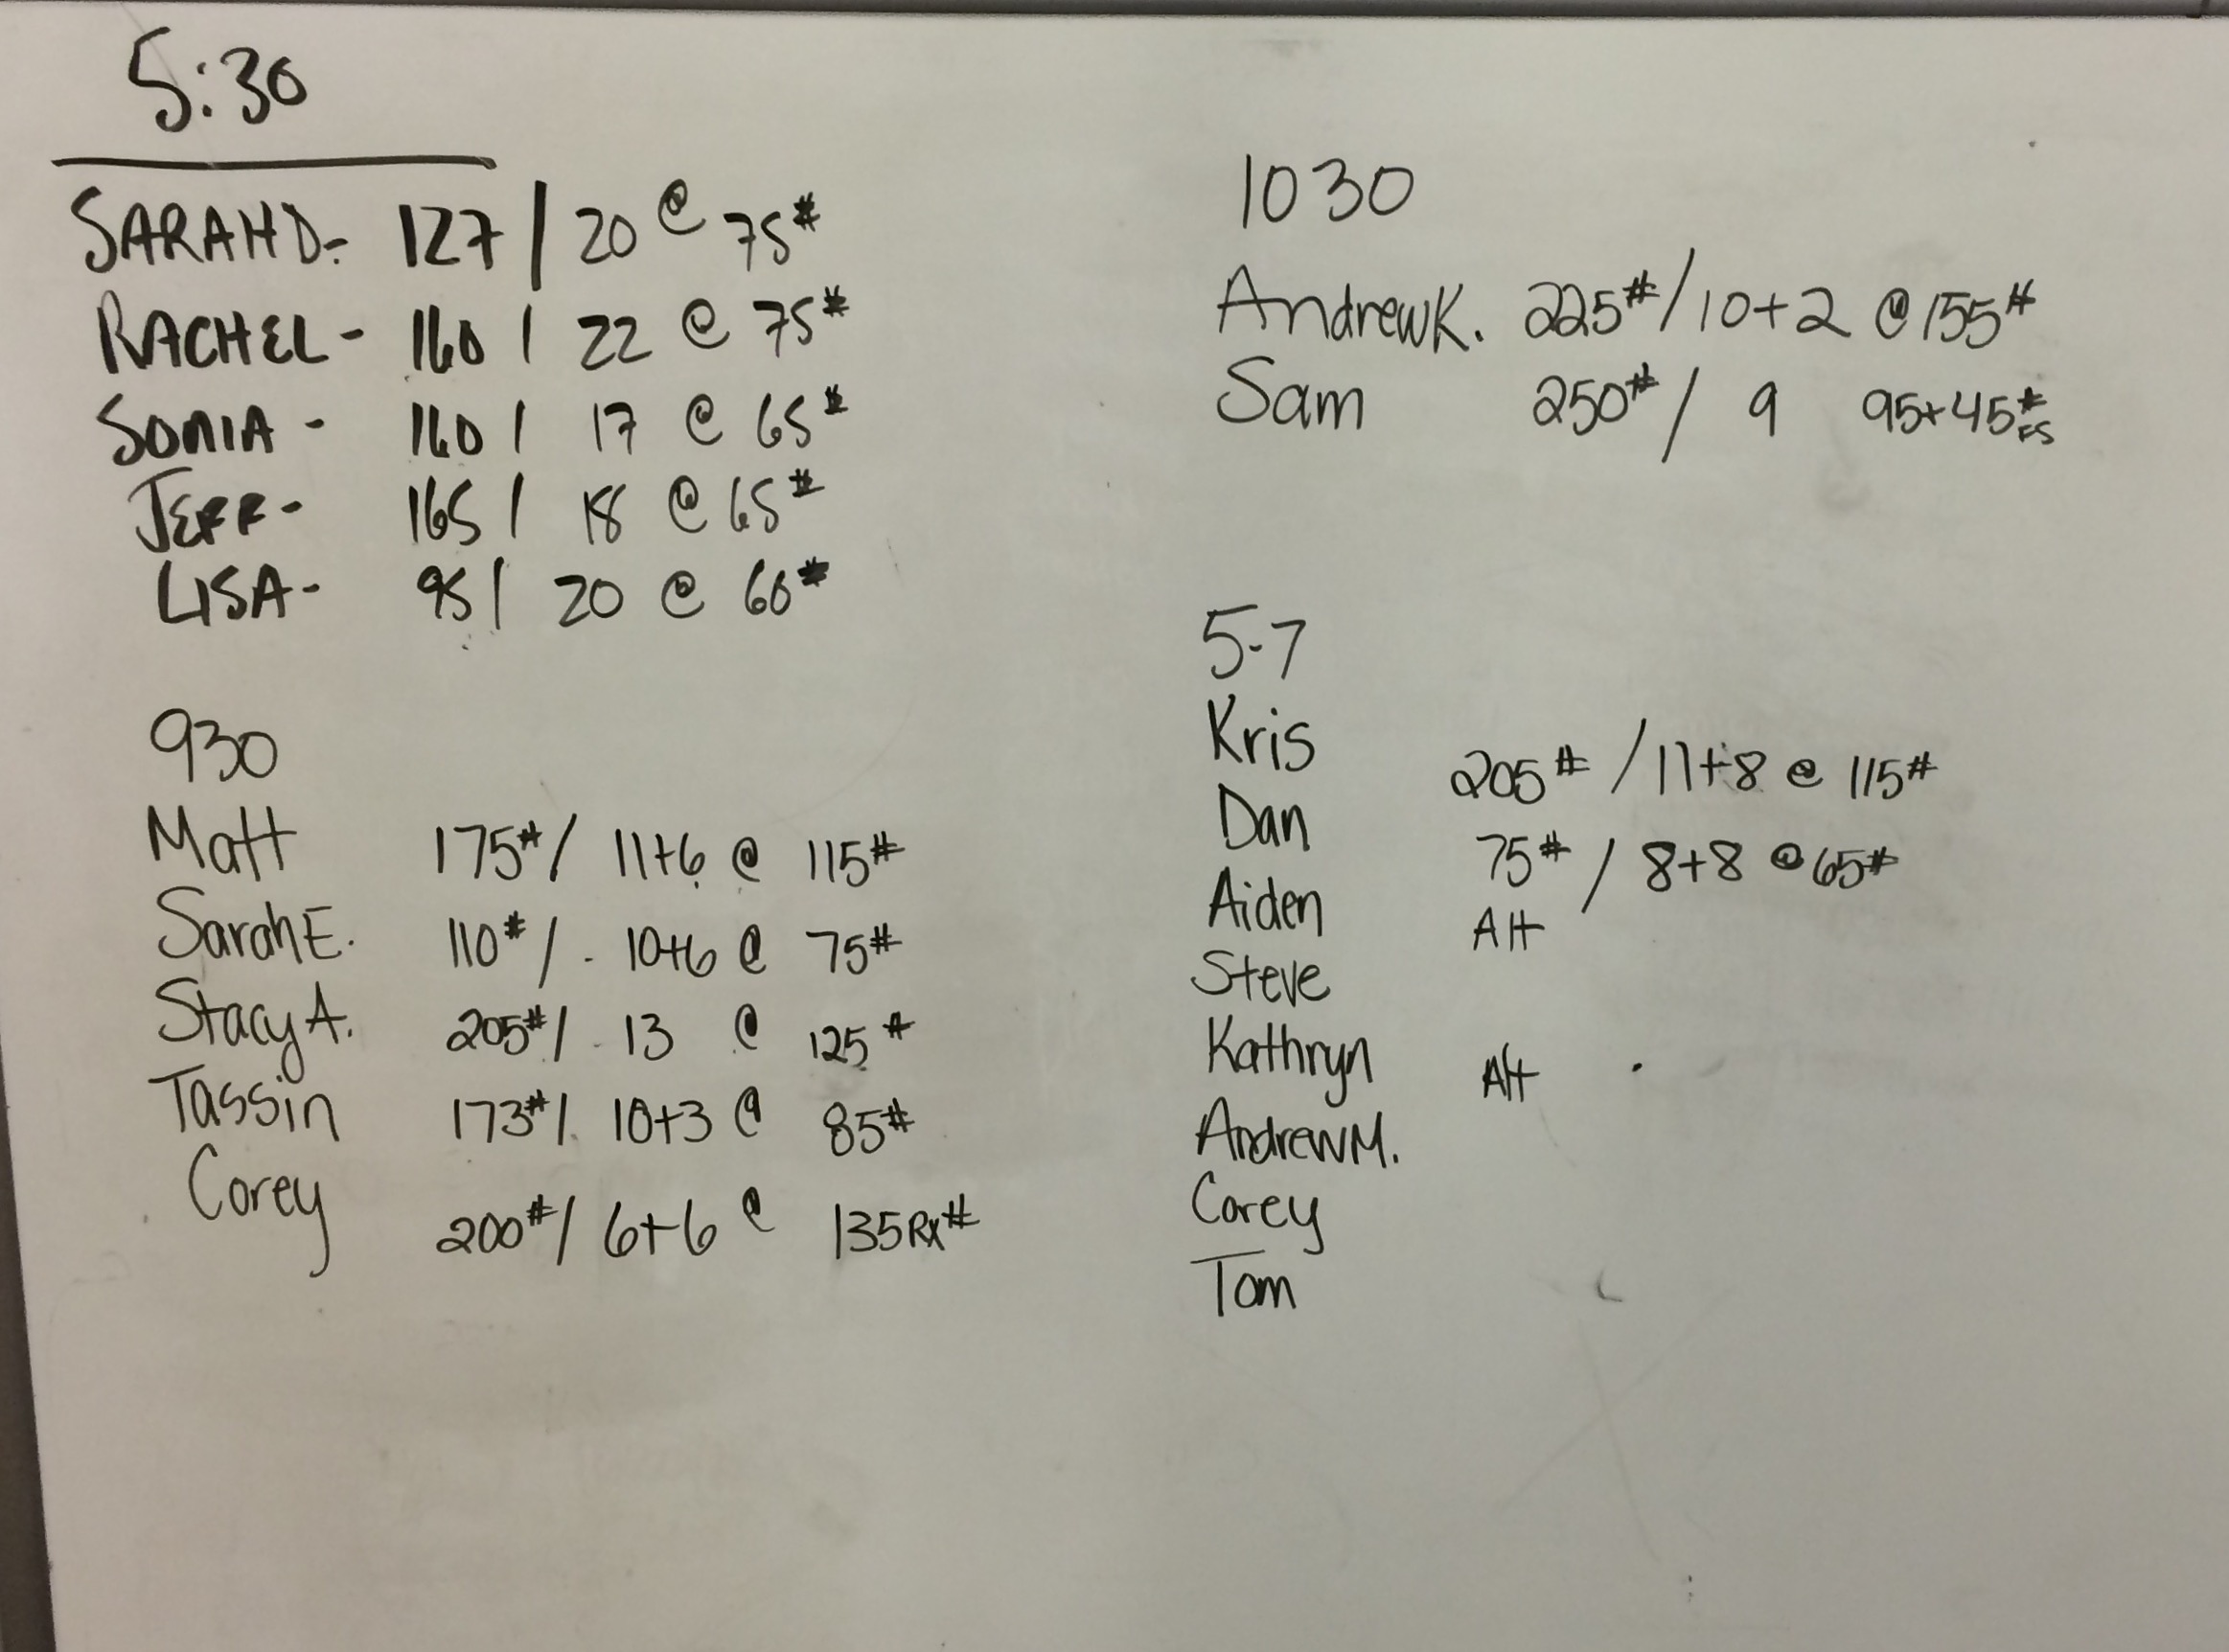 5:30
SARAH D- 127 / 20 @ 75#
RACHEL - 160 / 22 @ 75#
SONIA - 160 / 17 @ 65#
JEFF- 165 / 18 @ 65#
LISA- 95 / 20 @ 60#
930
Matt 175# / 11+6 @ 115#
Sarah E. 110# / 10+6 @ 75#
Stacy A. 205# / 13 @ 125#
Tassin 173# / 10+3 @ 85#
Corey 200# / 6+6 @ 135Rx#
1030
Andrew K. 225# / 10+2 @ 155#
Sam 250# / 9 95+45# FS
5-7
Kris 205# / 11+8 @ 115#
Dan 75# / 8+8 @ 65#
Aiden Alt
Steve
Kathryn Alt
Andrew M.
Corey
Tom